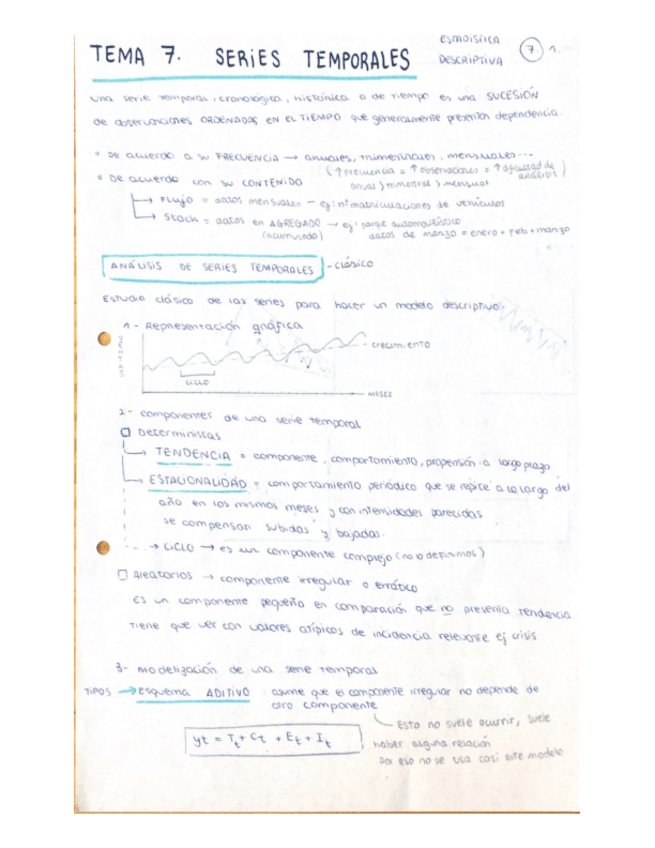 TEMA 7. SERIES TEMPORALES
ESTADÍSTICA
DESCRIPTIVA
7 1.
una serie temporal, cronológica, histórica o de tiempo es una SUCESIÓN
de observaciones ORDENADAS EN EL TIEMPO que generalmente presentan dependencia.
° De acuerdo a su FRECUENCIA → anuales, trimestrales, mensuales...
(↑ frecuencia = ↑ observaciones = ↑ dificultad de análisis)
anual > trimestral > mensual
° De acuerdo con su CONTENIDO
→ Flujo = datos mensuales - ej: nº matriculaciones de vehículos
→ Stock = datos en AGREGADO → ej: parque automovilístico
(acumulado) datos de marzo = enero + feb + marzo
ANÁLISIS DE SERIES TEMPORALES - clásico
Estudio clásico de las series para hacer un modelo descriptivo:
1- Representación gráfica
VENTAS
crecimiento
CICLO
MESES
2- componentes de una serie temporal
Deterministas
→ TENDENCIA = componente, comportamiento, propensión a largo plazo
→ ESTACIONALIDAD = comportamiento periódico que se repite a lo largo del
año en los mismos meses y con intensidades parecidas
se compensan subidas y bajadas.
→ CICLO → es un componente complejo (no lo definimos)
Aleatorios → componente irregular o errático
Es un componente pequeño en comparación que no presenta tendencia
Tiene que ver con valores atípicos de incidencia relevante ej crisis
3- Modelización de una serie temporal
TIPOS → Esquema ADITIVO : asume que el componente irregular no depende de
otro componente
Esto no suele ocurrir, suele
haber alguna relación
Por eso no se usa casi este modelo
yt = Tt + Ct + Et + It